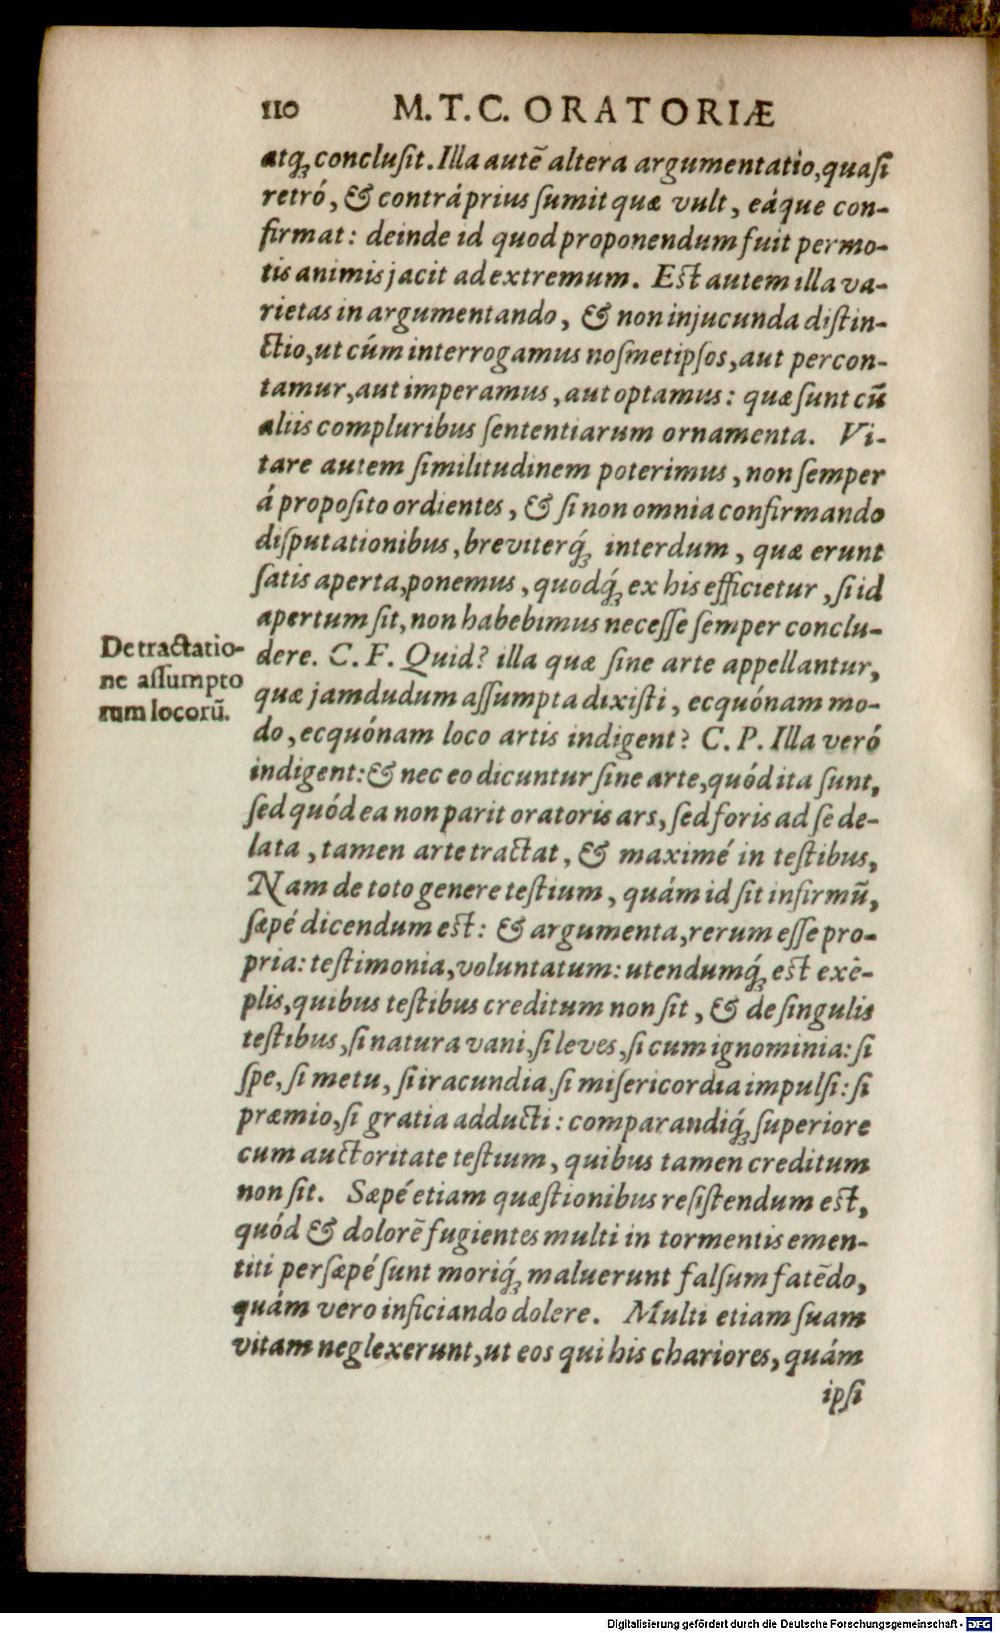 110 M. T. C. ORATORIÆ
atq́ꝫ conclusit. Illa autē altera argumentatio, quasi
retró, & contrá prius sumit quæ vult, eáque con-
firmat: deinde id quod proponendum fuit permo-
tis animis jacit ad extremum. Est autem illa va-
rietas in argumentando, & non injucunda distin-
ctio, ut cúm interrogamus nosmetipsos, aut percon-
tamur, aut imperamus, aut optamus: quæ sunt cū
aliis compluribus sententiarum ornamenta. Vi-
tare autem similitudinem poterimus, non semper
á proposito ordientes, & si non omnia confirmando
disputationibus, breviterq́ꝫ interdum, quæ erunt
satis aperta, ponemus, quodq́ꝫ ex his efficietur, si id
apertum sit, non habebimus necesse semper conclu-
De tractatio-
ne assumpto
rum locorū.
dere. C. F. Quid? illa quæ sine arte appellantur,
quæ jamdudum assumpta dixisti, ecquónam mo-
do, ecquónam loco artis indigent? C. P. Illa veró
indigent: & nec eo dicuntur sine arte, quód ita sunt,
sed quód ea non parit oratoris ars, sed foris ad se de-
lata, tamen arte tractat, & maximé in testibus,
Nam de toto genere testium, quám id sit infirmū,
sæpé dicendum est: & argumenta, rerum esse pro-
pria: testimonia, voluntatum: utendumq́ꝫ est exē-
plis, quibus testibus creditum non sit, & de singulis
testibus, si natura vani, si leves, si cum ignominia: si
spe, si metu, si iracundia, si misericordia impulsi: si
præmio, si gratia adducti: comparandiq́ꝫ superiore
cum auctoritate testium, quibus tamen creditum
non sit. Sæpé etiam quæstionibus resistendum est,
quód & dolorē fugientes multi in tormentis emen-
titi persæpé sunt moriq́ꝫ maluerunt falsum fatēdo,
quám vero inficiando dolere. Multi etiam suam
vitam neglexerunt, ut eos qui his chariores, quám
ipsi
Digitalisierung gefördert durch die Deutsche Forschungsgemeinschaft - DFG